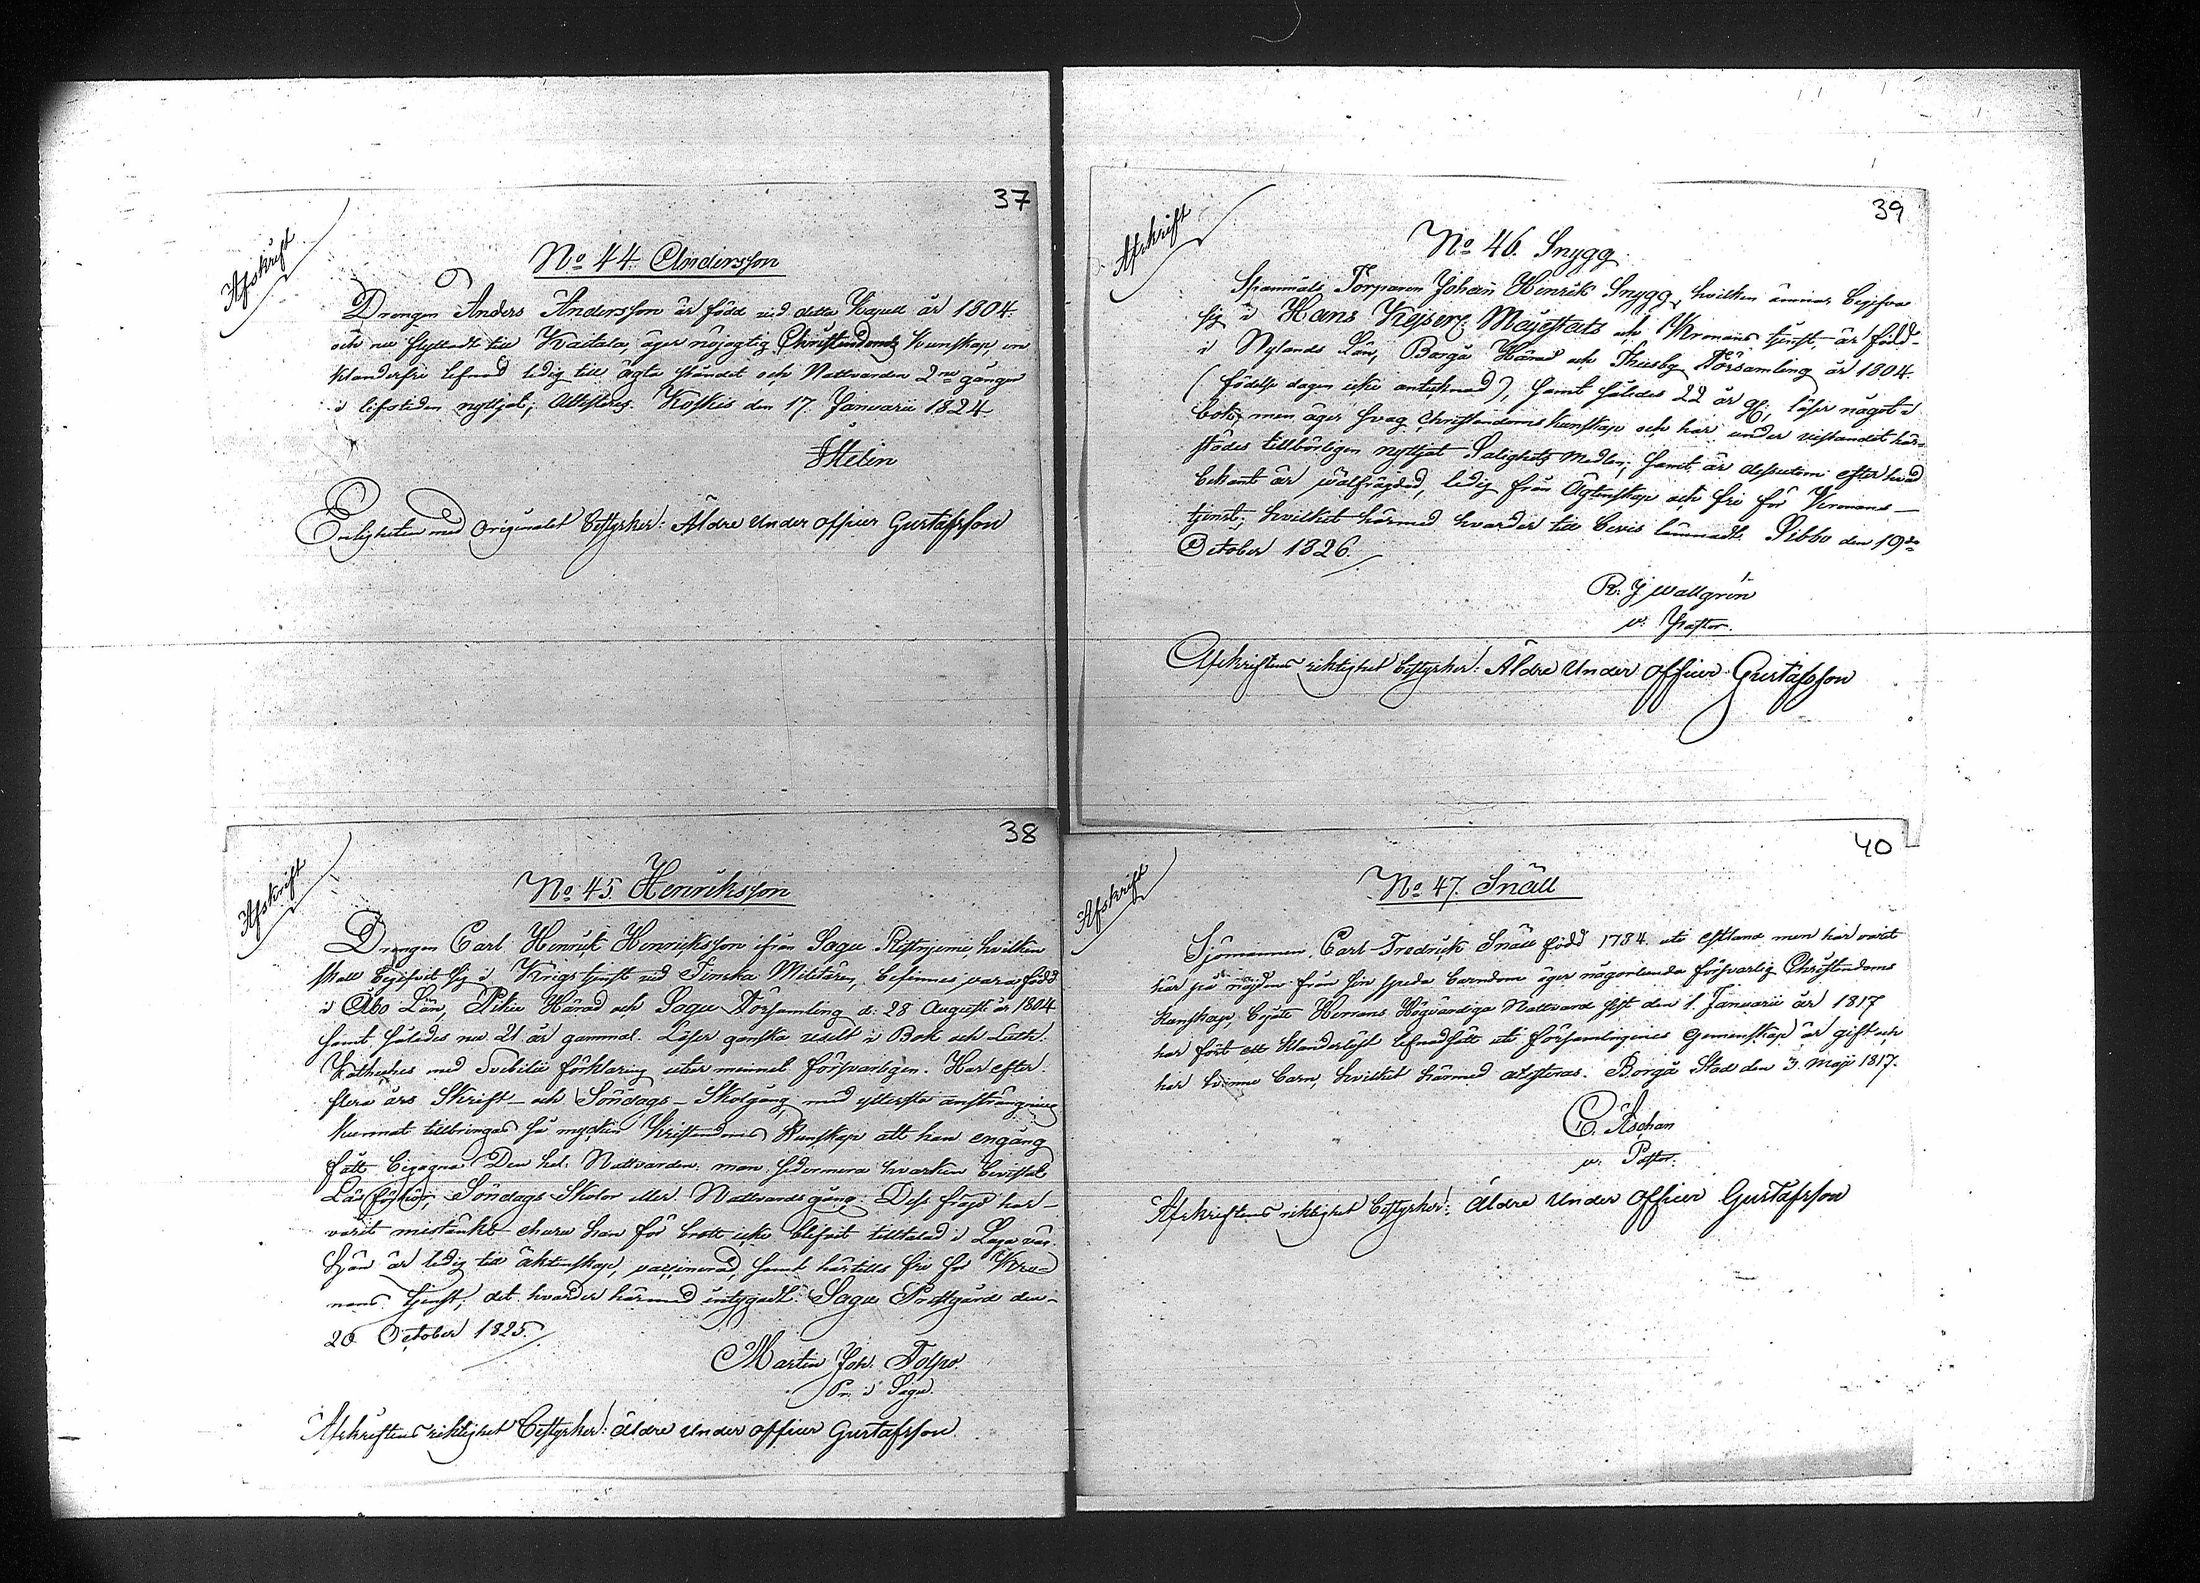 37
Afskrift
No 44. Andersson
Drengen Anders Andersson är född vid detta Kapell år 1804.
och nu flyttadt till Kvaitala, äger nöjagtig Christendoms Kunskap, en
klanderfri lefnad ledig till ägta ståndet och Nattvarden 2ne gånger
i lifstiden nyttjat; Attesteras. Koskis den 17. Januarii 1824.
Enligheten med Originalet bestyrker: Äldre Under officer Gustafsson
38
Afskrift
No 45. Henriksson
Drengen Carl Henrik Henriksson ifrån Sagu Ristniemi, hvilken
skall begifvit sig i Krigs tjenst vid Finska Militären, befinnes vara född
i Åbo Län, Pikie Härad och Sagu Församling d: 28 Augusti år 1804
samt således nu 21 år gammal. Läser ganska uselt i Bok och Luth.
Katheches med Svebilii förklaring utur minnet försvarligen. Har efter
flera års Skrift- och Söndags-Skolgång med yttersta ansträngning
kunnat tillbringas så mycken Kristendoms Kunskap att han engång
fått begagna Den hel. Nattvarden, men sedermera hvarken bevistat
Läsförhör, Söndags Skolor eller Nattvards gång. Dess frägd har
varit misstänkt ehuru han för brott icke blifvit tilltalad i Laga väg.
Han är ledig till äktenskap, vaccinerad, samt härtills fri för Kro-
nans tjenst; det hvarder härmed intygadt. Sagu Prestgård den
20 October 1825.
Martin Joh. Tolpo.
Pr. i Sagu.
Afskriftens riktighet bestyrker: Äldre Under officer Gustafsson.
39
Afskrift
No 46. Snygg.
Torparen Johan Henrik Snygg, hvilken ämnar begifva
sig i Hans Kejserl. Majestäts och Kronans tjenst, är född
i Nylands Län, Borgå Härad och Thusby Församling år 1804.
(födelse dagen icke antecknad), samt således 22 år gl, läser något i
bok, men äger svag Christendoms kunskap och har under vistandet här-
städes tillbörligen nyttjat Salighets Medlen; samt är dessutom efter hvad
bekant är välfrägdad, ledig från Ägtenskap och fri för Kronans
tjenst; hvilket härmed hvarder till bevis lämnadt. Sibbo den 19de
October 1826.
R. J Wallgrén
v. Pastor.
Afskriftens riktighet bestyrker: Äldre Under officer Gustafsson
40
Afskrift
No 47. Snäll
Sjömannen, Carl Fredrik Snäll född 1784. uti Estland men har varit
här på nägden från sin späda barndom äger någorlunda försvarlig Christendoms
kunskap, begått Herrans Högvärdiga Nattvard sist den 1 Januarii år 1817
har fört ett klanderlöst lefnadssätt uti församlingenes Gemenskap är gift och
har tvänne barn, hvilket härmed attesteras. Borgå Stad den 3. Maji 1817.
C. Aschan
v. Pastor.
Afskriftens riktighet bestyrker: Äldre Under officer Gustafsson